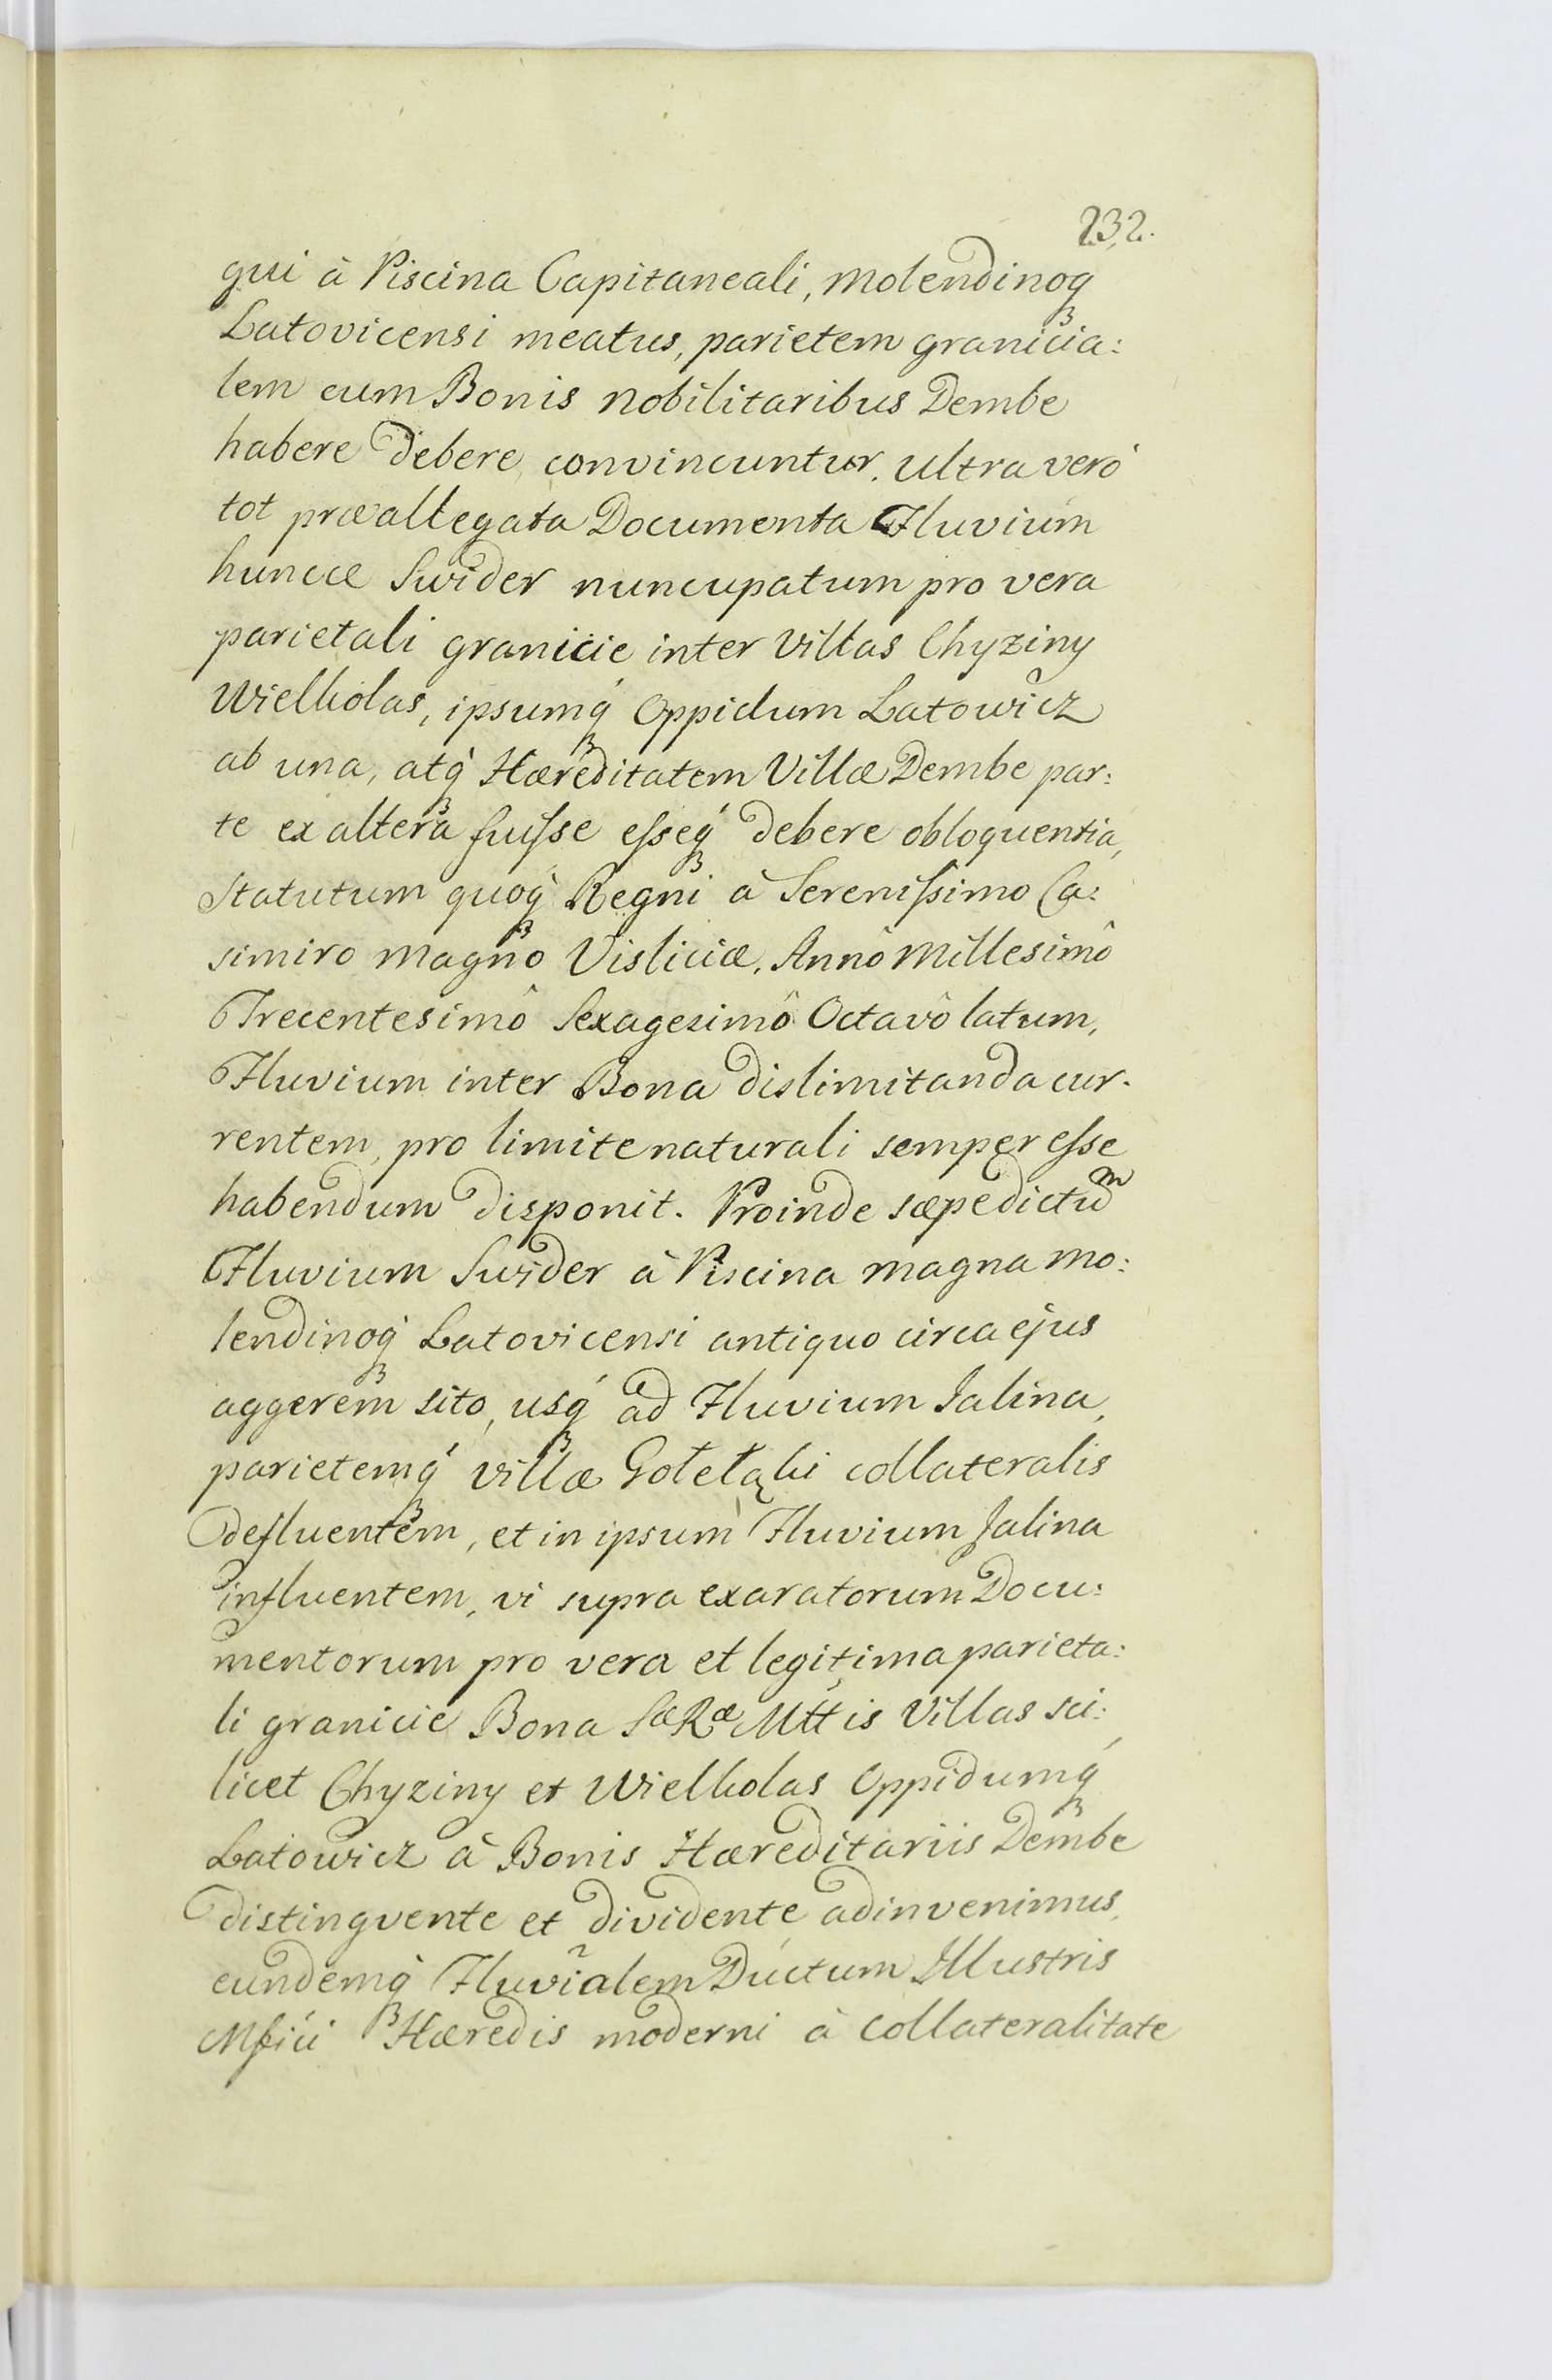 232.
qui à Piscina Capitaneali, Molendinoq́ꝫ
Latovicensi meatus, parietem granicia:
lem cum Bonis Nobilitaribus Dembe
habere debere convincuntur. Ultra verò
tot præallegata Documenta Fluvium
huncce Swider nuncupatum pro vera
parietali granicie inter Villas Chyziny
Wielkolas, ipsumq́ꝫ Oppidum Latowicz
ab una, atq́ꝫ Hæreditatem Villæ Dembe par:
te ex altera fuiſse eſseq́ꝫ debere obloquentia,
Statutum quoq́ꝫ Regni à Sereniſsimo Ca:
simiro Magno Visliciæ. Annô Millesimô
Trecentesimô Sexagesimô Octavô latum,
Fluvium inter Bona dislimitanda cur.
rentem, pro limite naturali semper eſse
habendum disponit. Proinde sæpedictum
Fluvium Swider à Piscina magna Mo:
lendinoq́ꝫ Latovicensi antiquo circa ejus
aggerem sito, usq́ꝫ ad Fluvium Jalina,
parietemq́ꝫ villæ Gołełąki collateralis
defluentem, et in ipsum Fluvium Jalina
influentem, vi supra exaratorum Docu:
mentorum pro vera et legitima parieta:
li granicie Bona Sæ Ræ Mttis Villas sci:
licet Chyziny et Wielkolas Oppidumq́ꝫ
Latowicz à Bonis Hæreditariis Dembe
distingvente et dividente adinvenimus,
eundemq́ꝫ Fluvialem Ductum Illustris
Mfici Hæredis moderni à collateralitate